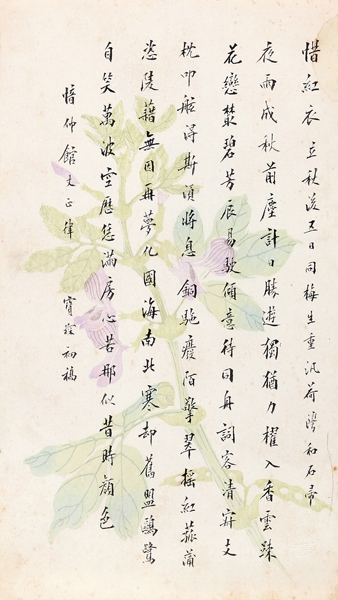 惜紅衣立秋後五日同梅生重汎荷蕩和石帚
夜雨成秋前塵計日勝遊獨猶力櫂入香雲疎
花戀襲碧芳辰易歇傾意待回舟詞客清寂文
枕叩舷淂斯須將息銅駝癈陌擎翠搖紅菰蒲
恣陵藉無因再夢化國海南北寒却舊盟鷗鷺
自笑萬波空歷愁滿房心苦那似昔時顏色
愔仲館丈正律 寳瑩初稿